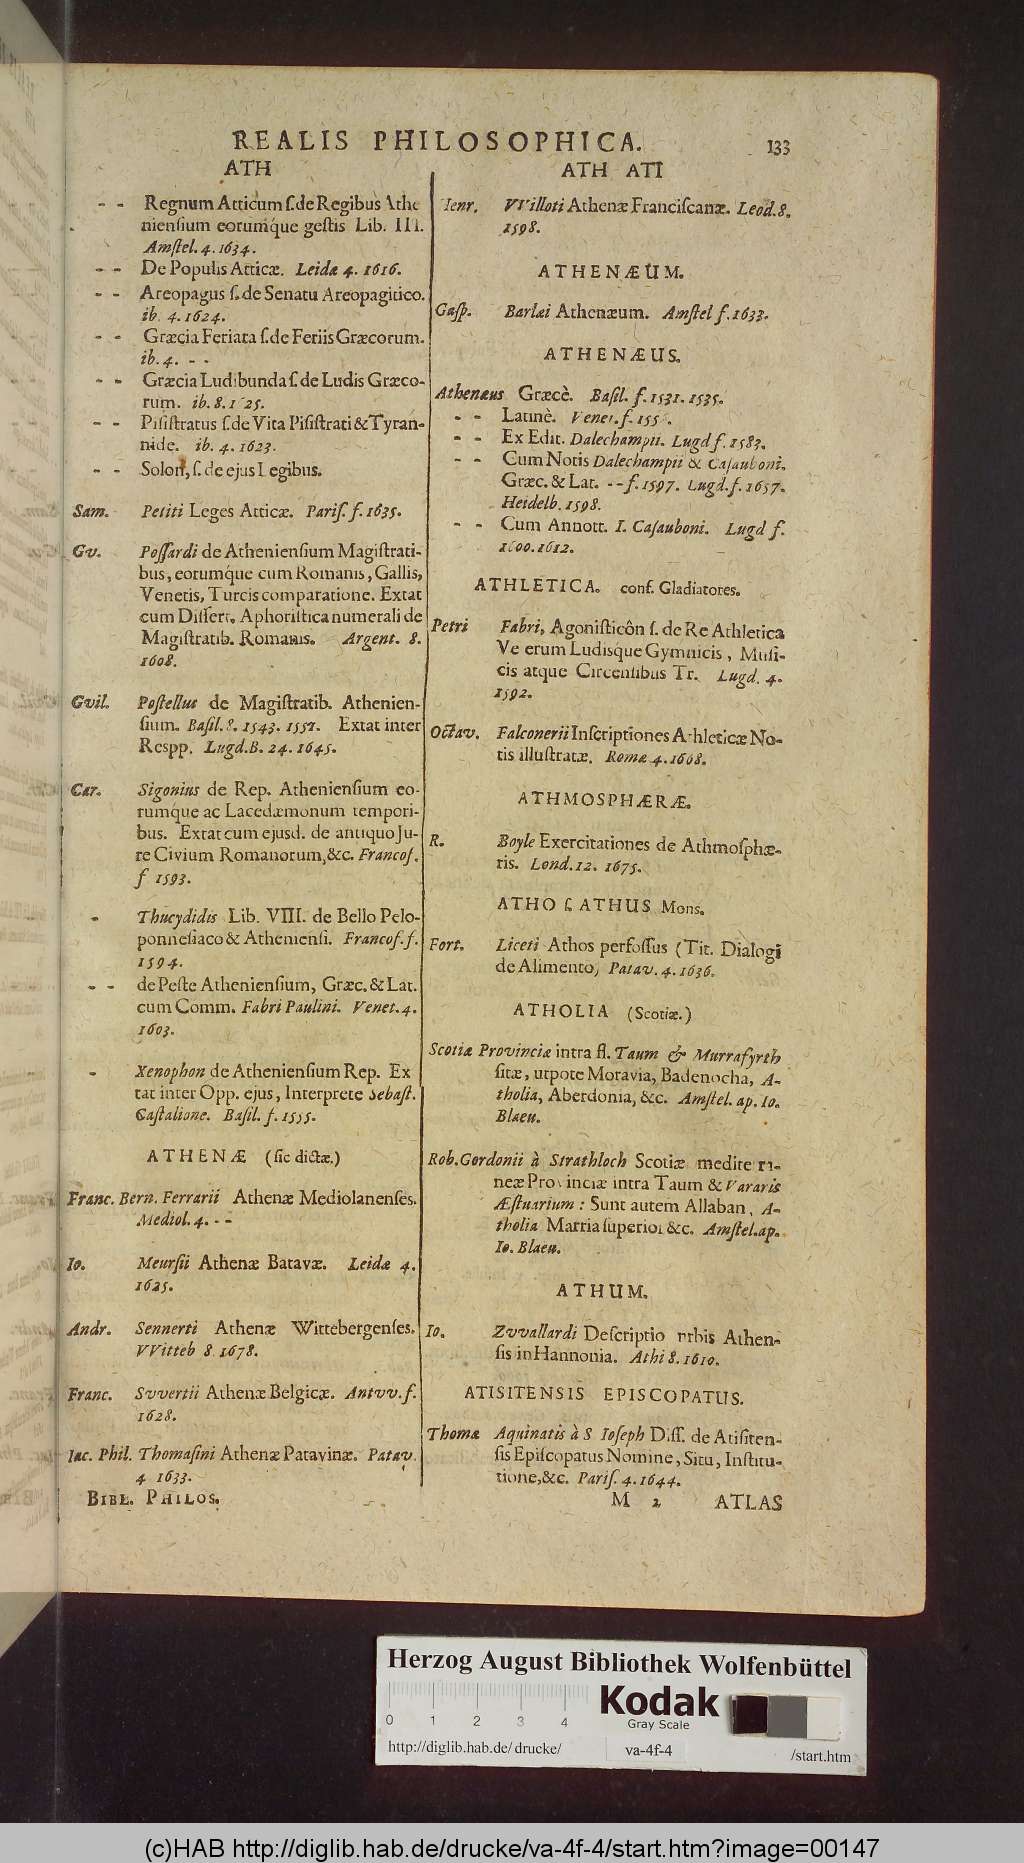 REALIS PHILOSOPHICA. 133
ATH
- - Regnum Atticum ſ. de Regibus Athe
nienſium eorumq́ue geſtis Lib. III.
Amſtel. 4. 1634.
- - De Populis Atticæ. Leidæ 4. 1616.
- - Areopagus ſ. de Senatu Areopagitico.
ib. 4. 1624.
- - Græcia Feriata ſ. de Feriis Græcorum.
ib. 4. - -
- - Græcia Ludibunda ſ. de Ludis Græco-
rum. ib. 8. 1625.
- - Piſiſtratus ſ. de Vita Piſiſtrati & Tyran-
nide. ib. 4. 1623.
- - Solon, ſ. de ejus Legibus.
Sam. Petiti Leges Atticæ. Pariſ. f. 1635.
Gv. Poſſardi de Athenienſium Magiſtrati-
bus, eorumq́ue cum Romanis, Gallis,
Venetis, Turcis comparatione. Extat
cum Diſſert. Aphoriſtica numerali de
Magiſtratib. Romanis. Argent. 8.
1608.
Gvil. Poſtellus de Magiſtratib. Athenien-
ſium. Baſil. 8. 1543. 1551. Extat inter
Reſpp. Lugd. B. 24. 1645.
Car. Sigonius de Rep. Athenienſium eo-
rumq́ue ac Lacedæmonum tempori-
bus. Extat cum ejusd. de antiquo Ju-
re Civium Romanorum, &c. Francof.
f 1593.
- Thucydidis Lib. VIII. de Bello Pelo-
ponneſiaco & Athenienſi. Francof. f.
1594.
- - de Peſte Athenienſium, Græc. & Lat.
cum Comm. Fabri Paulini. Venet. 4.
1603.
- Xenophon de Athenienſium Rep. Ex
tat inter Opp. ejus, Interprete Sebaſt.
Caſtalione. Baſil. f. 1555.
ATHENÆ (ſic dictæ.)
Franc. Bern. Ferrarii Athenæ Mediolanenſes.
Mediol. 4. - -
Io. Meurſii Athenæ Batavæ. Leidæ 4.
1625.
Andr. Sennerti Athenæ Wittebergenſes.
VVitteb 8. 1678.
Franc. Svvertii Athenæ Belgicæ. Antvv. f.
1628.
Jac. Phil. Thomaſini Athenæ Patavinæ. Patav.
4 1633.
BIBL. PHILOS.
ATH ATI
Henr. VVilloti Athenæ Franciſcanæ. Leod. 8.
1598.
ATHENÆUM.
Gaſp. Barlæi Athenæum. Amſtel f. 1633.
ATHENÆUS.
Athenæus Græcè. Baſil. f. 1531. 1535.
- - Latinè. Venet. f. 155
- - Ex Edit. Dalechampii. Lugd f. 1583.
- - Cum Notis Dalechampii & Caſauboni.
Græc. & Lat. - - f. 1597. Lugd. f. 1657.
Heidelb. 1598.
- - Cum Annott. I. Caſauboni. Lugd f.
1600. 1612.
ATHLETICA. conf. Gladiatores.
Petri Fabri, Agoniſticôn ſ. de Re Athletica
Ve erum Ludisque Gymnicis, Muſi-
cis atque Circenſibus Tr. Lugd. 4.
1592.
Octav. Falconerii Inſcriptiones Athleticæ No-
tis illuſtratæ. Romæ 4. 1668.
ATHMOSPHÆRÆ.
R. Boyle Exercitationes de Athmoſphæ-
ris. Lond. 12. 1675.
ATHO ſ. ATHUS Mons.
Fort. Liceti Athos perfoſſus (Tit. Dialogi
de Alimento) Patav. 4. 1636.
ATHOLIA (Scotiæ.)
Scotiæ Provinciæ intra fl. Taum & Murrafyrth
ſitæ, utpote Moravia, Badenocha, A-
tholia, Aberdonia, &c. Amſtel. ap. Io.
Blaeu.
Rob. Gordonii à Strathloch Scotiæ mediterra-
neæ Provinciæ intra Taum & Vararis
Æſtuarium: Sunt autem Allaban, A-
tholia Marria ſuperior &c. Amſtel. ap.
Io. Blaeu.
ATHUM.
Io. Zvvallardi Deſcriptio urbis Athen-
ſis in Hannonia. Athi 8. 1610.
ATISITENSIS EPISCOPATUS.
Thomæ Aquinatis à S Ioſeph Diſſ. de Atiſiten-
ſis Epiſcopatus Nomine, Situ, Inſtitu-
tione, &c. Pariſ. 4. 1644.
M 2 ATLAS
Herzog August Bibliothek Wolfenbüttel
0 1 2 3 4
Kodak
Gray Scale
http://diglib.hab.de/drucke/ va-4f-4 /start.htm
(c)HAB http://diglib.hab.de/drucke/va-4f-4/start.htm?image=00147